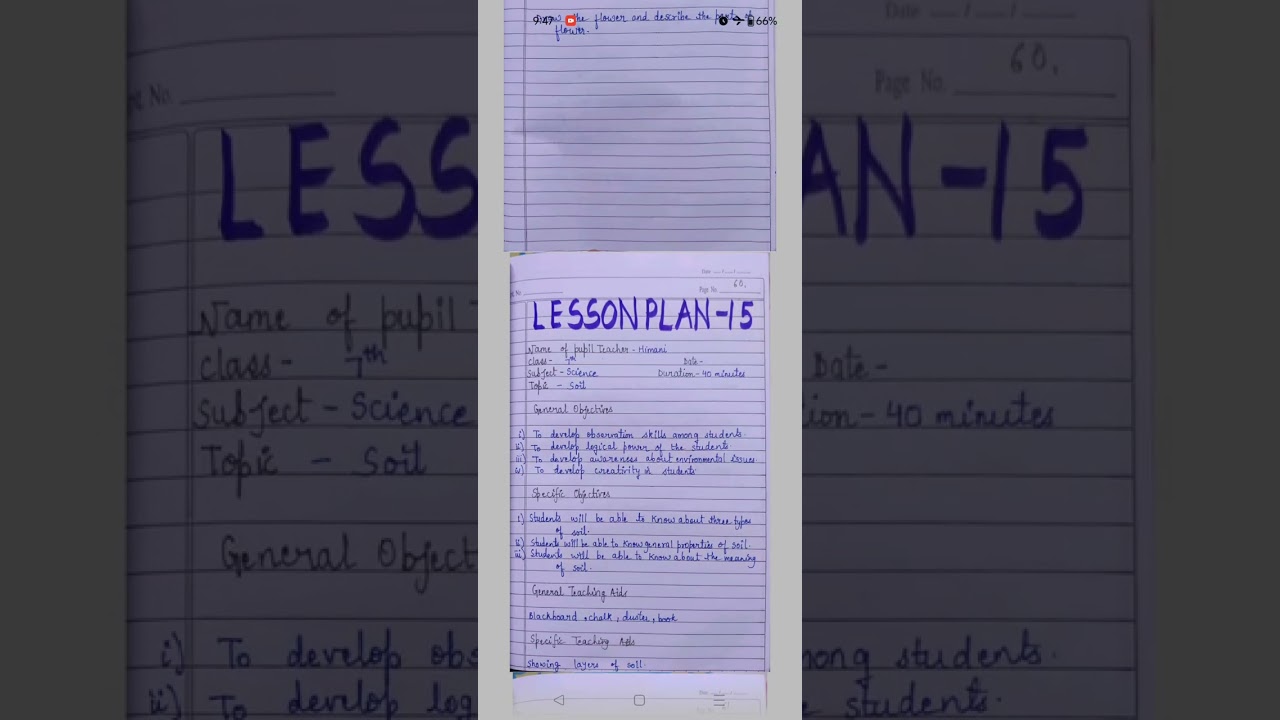 9:47
66%
the flower and describe the parts of
flower.
Date __/__/__
Page No. 60.
LESSON PLAN-15
Name of pupil Teacher - Himani
Class- 7th Date-
Subject - Science Duration - 40 minutes
Topic - Soil
General Objectives
i) To develop observation skills among students.
ii) To develop logical power of the students.
iii) To develop awareness about environmental issues.
iv) To develop creativity in students
Specific Objectives
i) Students will be able to know about three types
of soil.
ii) Students will be able to know general properties of soil.
iii) Students will be able to know about the meaning
of soil.
General Teaching Aids
Blackboard, chalk, duster, book
Specific Teaching Aids
Showing layers of soil.